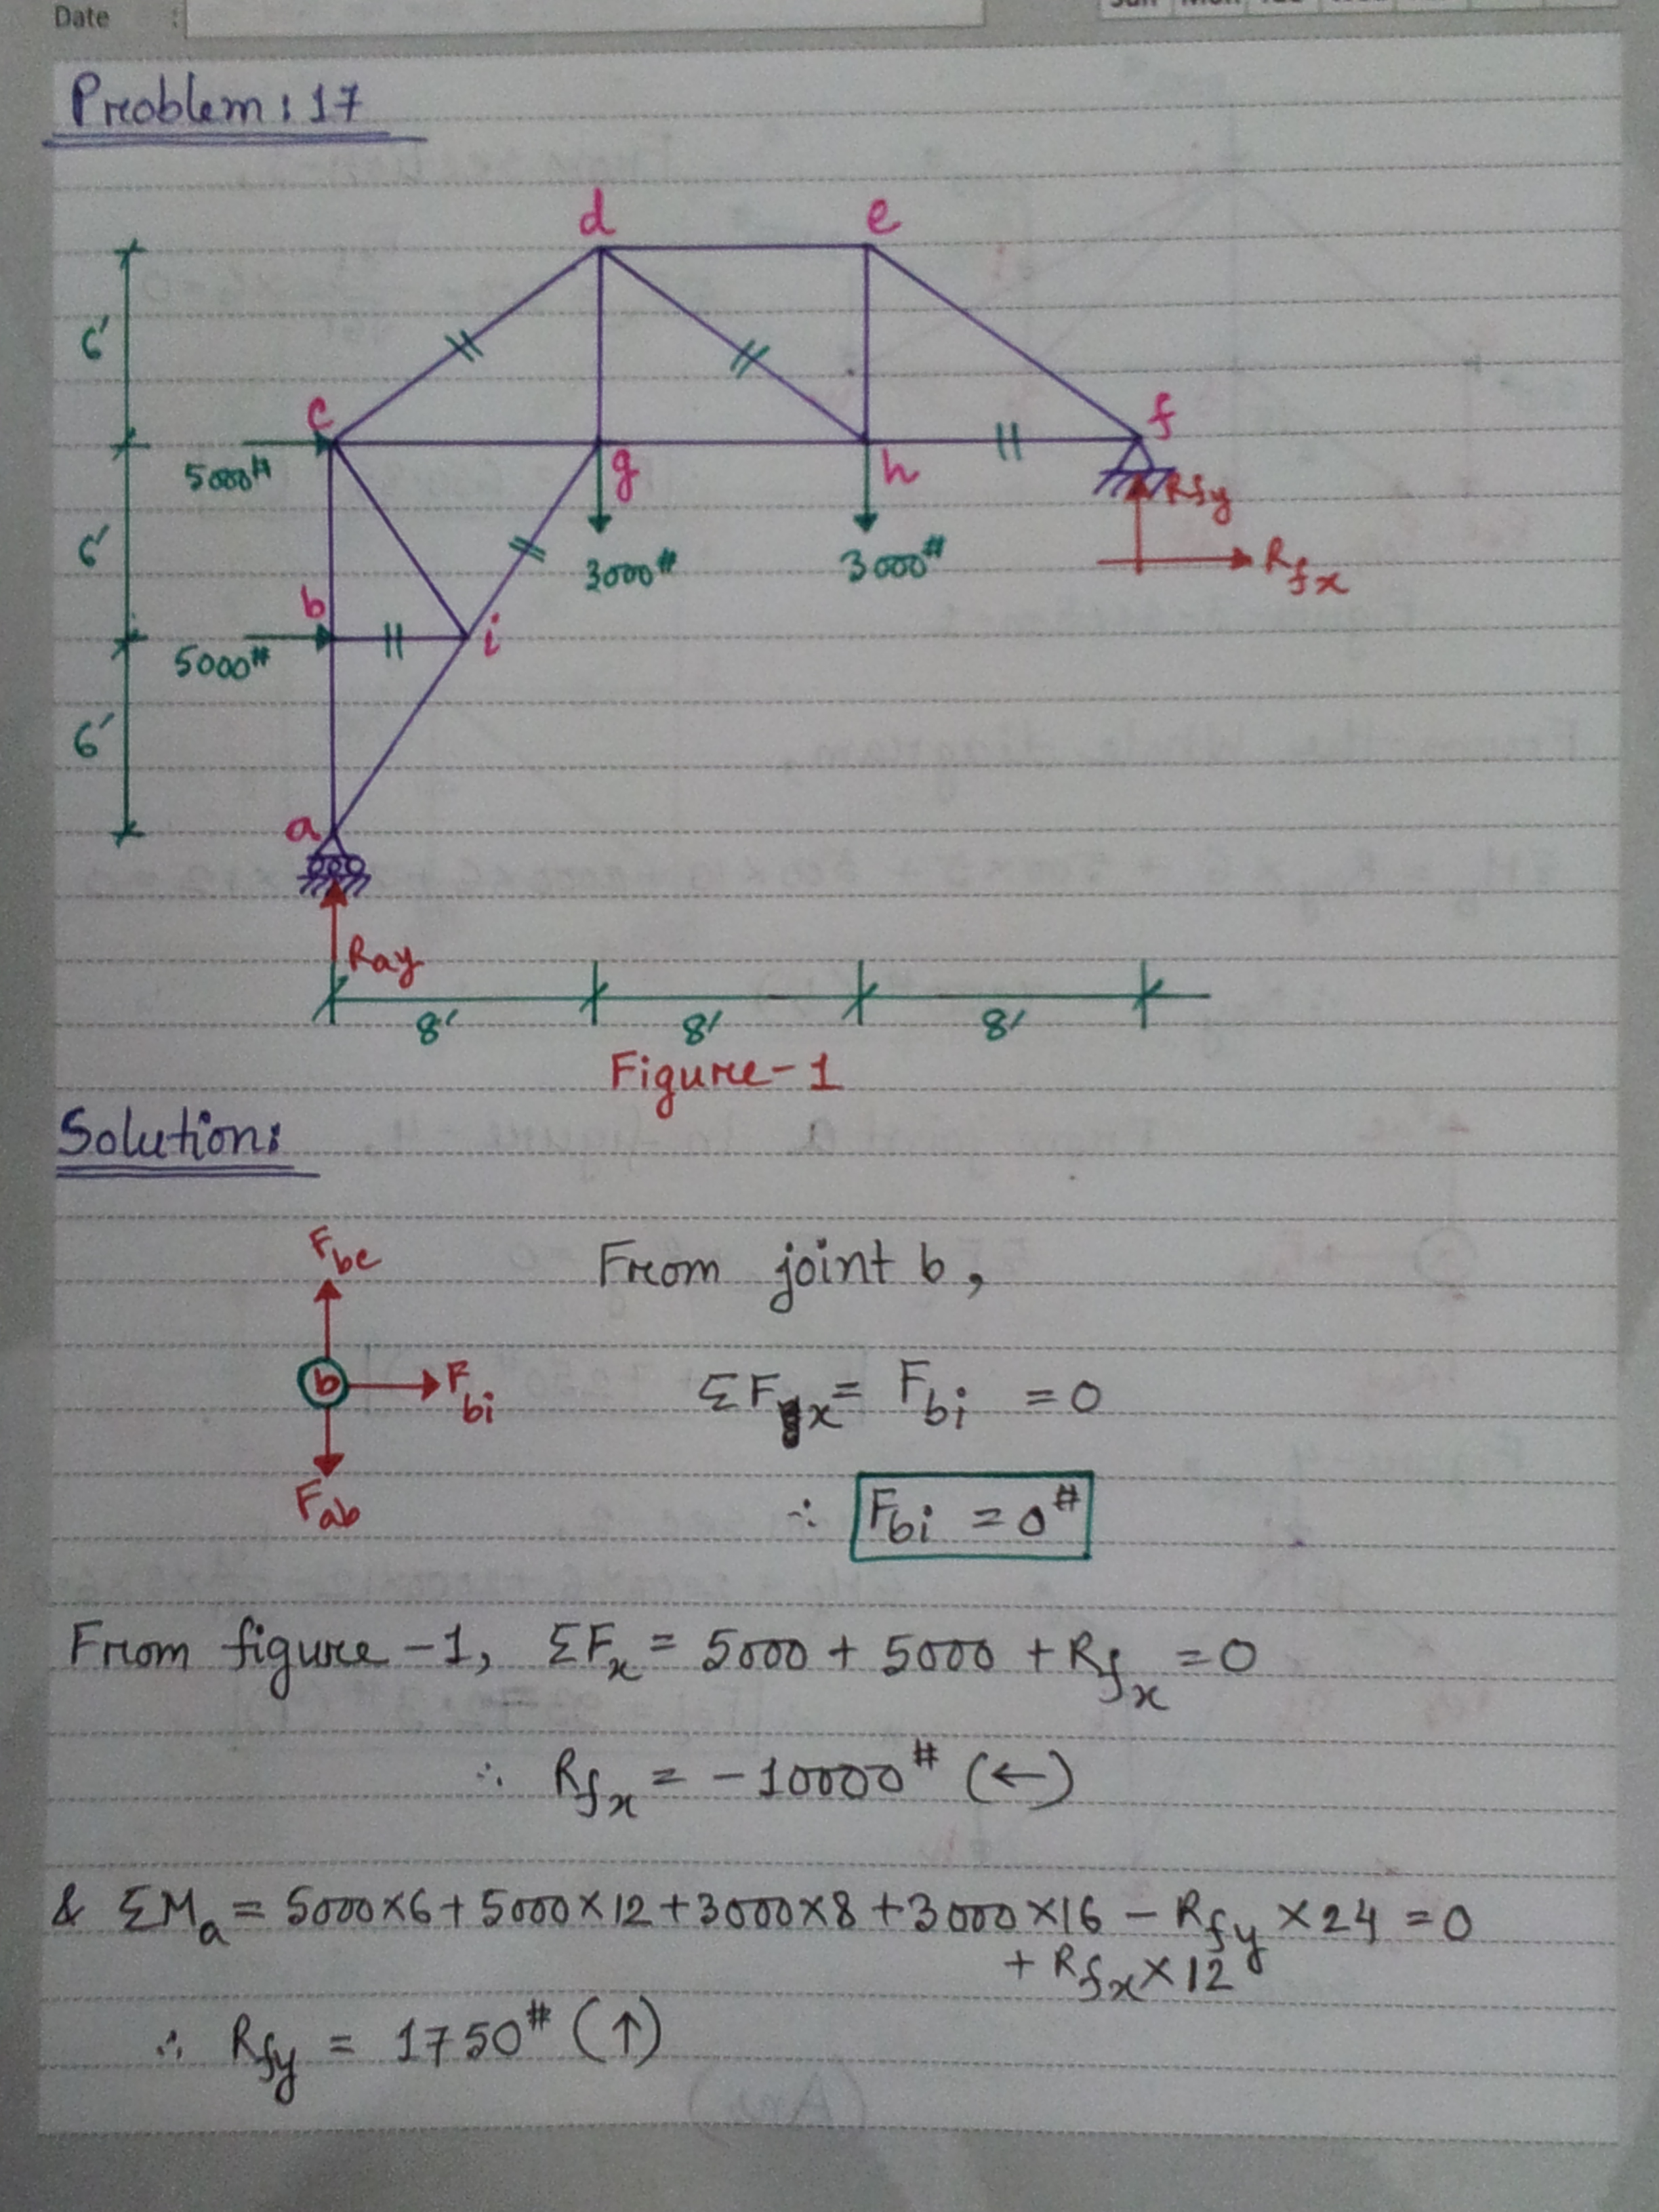 Date :
Sun Mon Tue
Problem: 17
d e
6'
c f
5000# g h Rfy
6' 3000# 3000# Rfx
b i
5000#
6'
a
Ray
8' 8' 8'
Figure-1
Solution:
Fbc
From joint b,
b Fbi
ΣFx = Fbi = 0
Fab
∴ Fbi = 0#
From figure-1, ΣFx = 5000 + 5000 + Rfx = 0
∴ Rfx = -10000# (←)
& ΣMa = 5000×6 + 5000×12 + 3000×8 + 3000×16 - Rfy × 24 = 0
+ Rfx × 12
∴ Rfy = 1750# (↑)